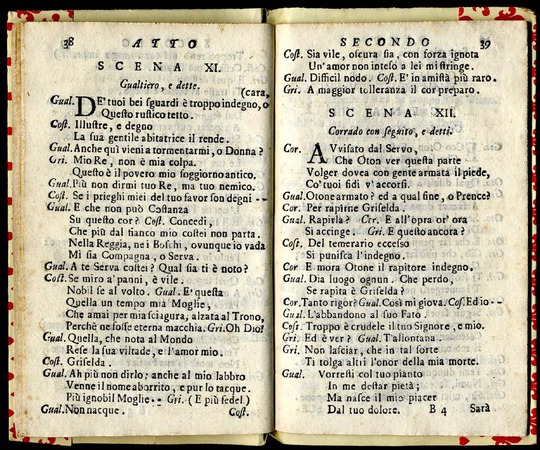 38 ATTO
SCENA XI.
Gualtiero, e dette.
(cara,
Gual. DE'tuoi bei sguardi è troppo indegno, o
Questo rustico tetto.
Cost. Illustre, e degno
La sua gentile abitatrice il rende.
Gual. Anche quì vieni a tormentarmi, o Donna?
Gri. Mio Re, non è mia colpa.
Questo è il povero mio soggiorno antico,
Gual. Più non dirmi tuo Re, ma tuo nemico.
Cost. Se i prieghi miei del tuo favor son degni --
Gual. E che non può Costanza
Su questo cor? Cost. Concedi,
Che più dal fianco mio costei non parta.
Nella Reggia, nei Boschi, ovunque io vada
Mi sia Compagna, o Serva.
Gual. A te Serva costei? Qual sia ti è noto?
Cost. Se miro a' panni, è vile.
Nobil se al volto. Gual. E' questa
Quella un tempo mia Moglie,
Che amai per mia sciagura, alzata al Trono,
Perchè ne fosse eterna macchia. Gri. Oh Dio!
Gual. Quella, che nota al Mondo
Rese la sua viltade, e l'amor mio.
Cost. Griselda.
Gual. Ah più non dirlo; anche al mio labbro
Venne il nome aborrito, e pur lo tacque.
Più ignobil Moglie -- Gri. (E più fedel.)
Gual. Non nacque. Cost.
SECONDO 39
Cost. Sia vile, oscura sia, con forza ignota
Un'amor non inteso a lei mi stringe.
Gual. Difficil nodo. Cost. E' in amistà più raro.
Gri. A maggior tolleranza il cor preparo.
SCENA XII.
Corrado con seguito, e detti.
Cor. AVvisato dal Servo,
Che Oton ver questa parte
Volger dovea con gente armata il piede,
Co' tuoi fidi v'accorsi.
Gual. Otone armato? ed a qual fine, o Prence?
Cor. Per rapirne Griselda.
Gual. Rapirla? Cor. E all'opra or' ora
Si accinge. Gri. E questo ancora?
Cost. Del temerario eccesso
Si punisca l'indegno.
Cor E mora Otone il rapitore indegno.
Gual. Dia luogo ognun. Che perdo,
Se rapita è Griselda?
Cor. Tanto rigor? Gual. Così mi giova. Cost. Ed io --
Gual. L'abbandono al suo Fato.
Cost. Troppo è crudele il tuo Signore, e mio.
Gri. Ed è ver? Gual. T'allontana.
Gri. Non lasciar, che in tal sorte
Ti tolga altri l'onor della mia morte.
Gual. Vorresti col tuo pianto
In me destar pietà;
Ma nasce il mio piacer
Dal tuo dolore. B 4 Sarà